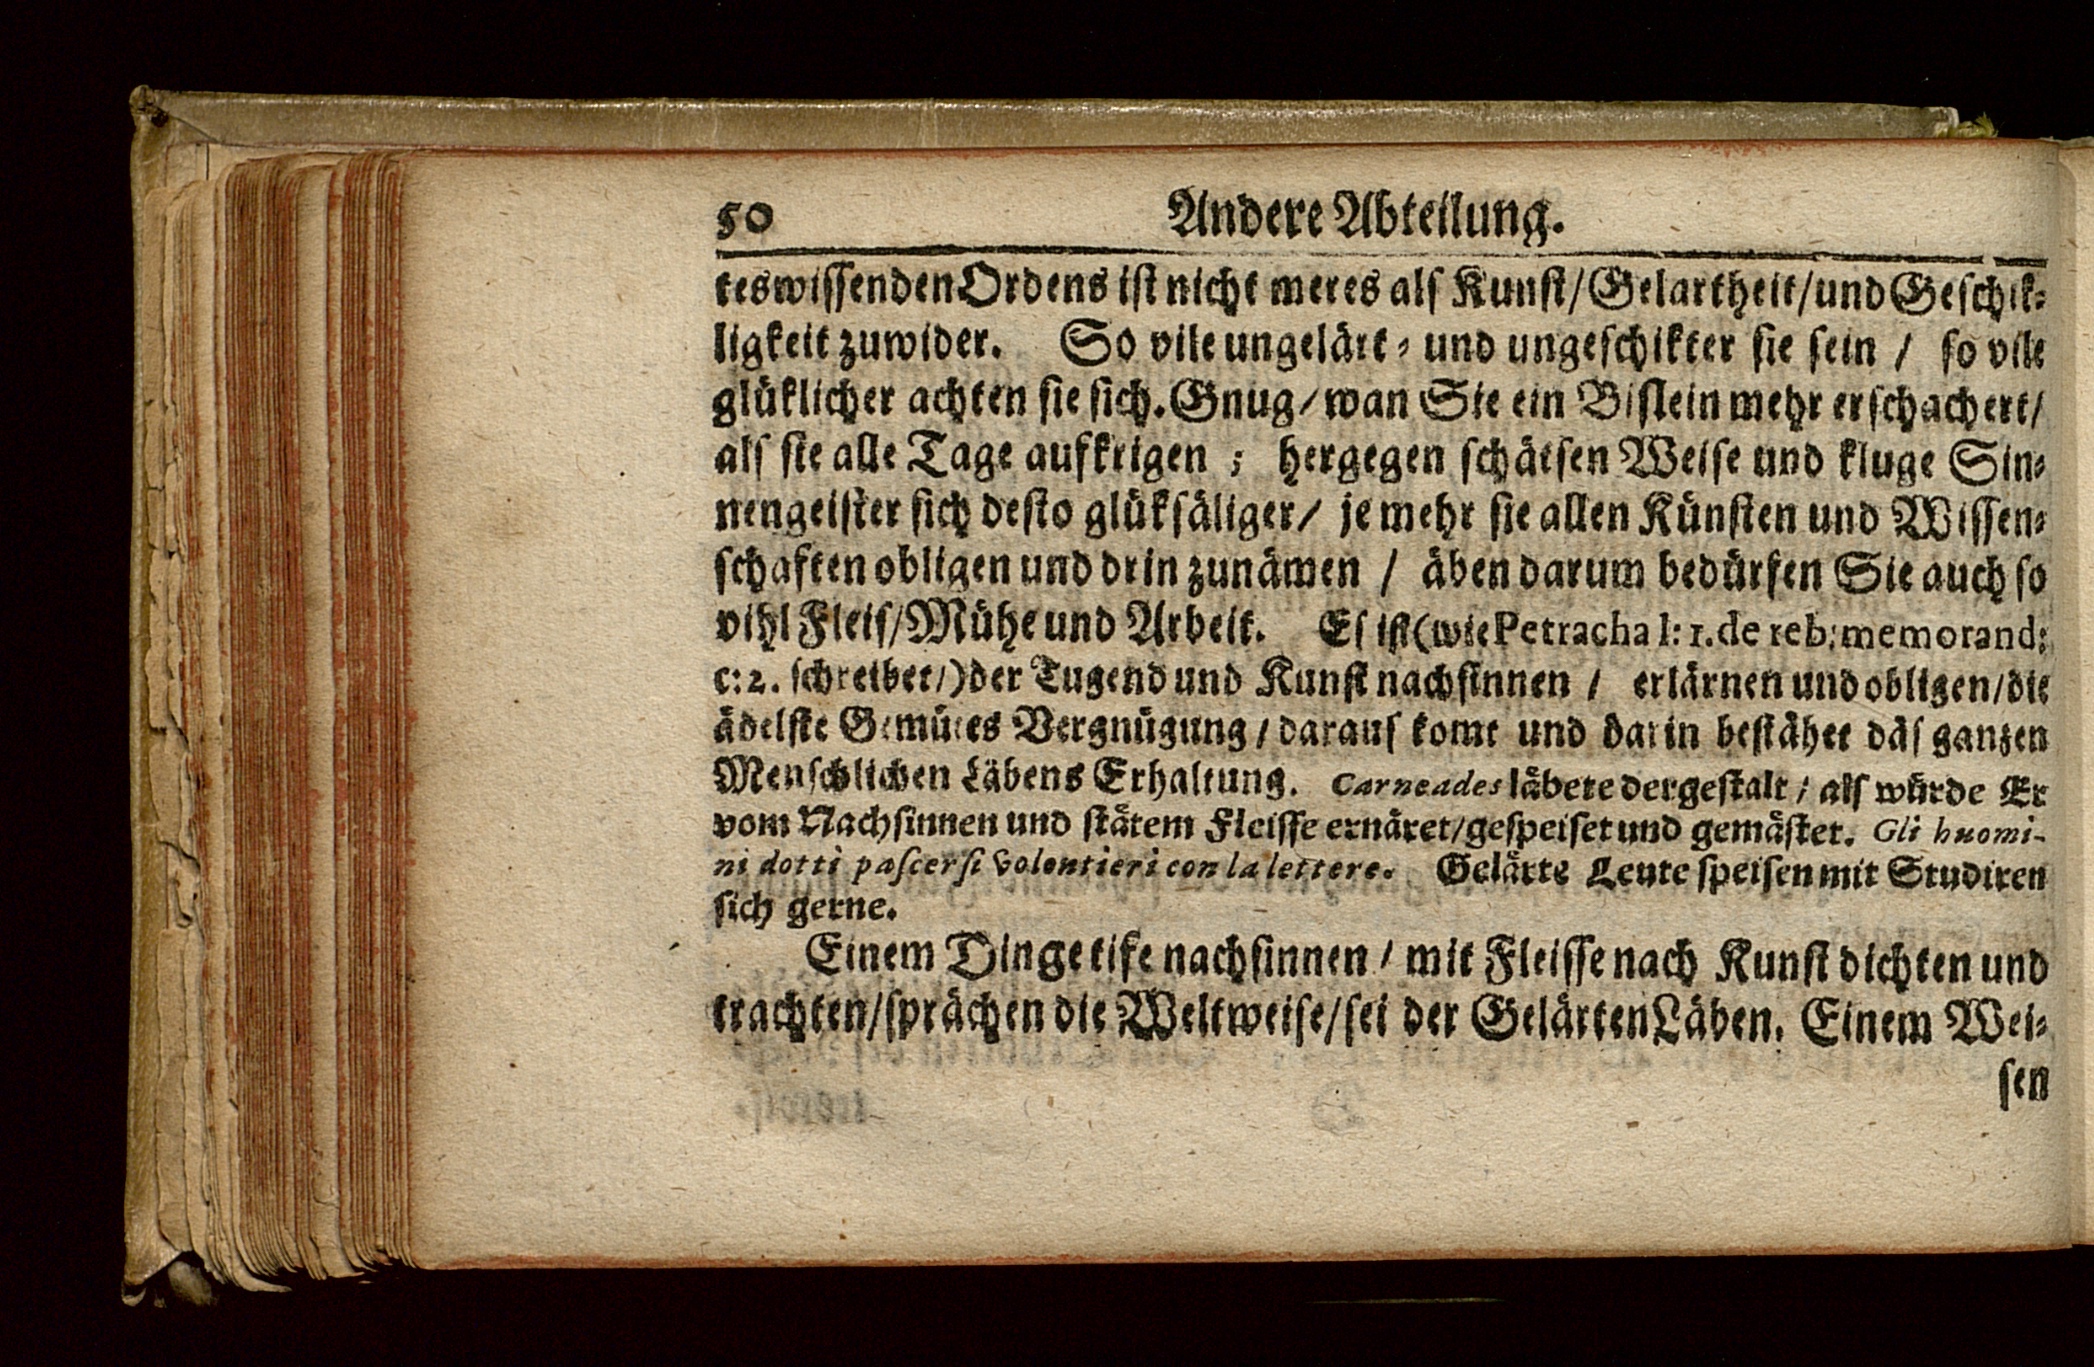 50 Andere Abteilung.
teswissenden Ordens ist nicht meres als Kunst/Gelartheit/und Geschik-
ligkeit zuwider. So vile ungelärt- und ungeschikter sie sein / so vile
glüklicher achten sie sich. Gnug/wan Sie ein Bislein mehr erschachert/
als sie alle Tage aufkrigen ; hergegen schätsen Weise und kluge Sin-
nengeister sich desto glüksäliger/ je mehr sie allen Künsten und Wissen-
schaften obligen und drin zunämen / äben darum bedürfen Sie auch so
vihl Fleis/Mühe und Arbeit. Es ist (wie Petracha l: 1. de reb; memorand;
c: 2. schreibet/) der Tugend und Kunst nachsinnen / erlärnen und obligen/die
ädelste Gemütes Vergnügung/daraus komt und darin bestähet däs ganzen
Menschlichen Läbens Erhaltung. Carneades läbete dergestalt / als würde Er
vom Nachsinnen und stätem Fleisse ernäret/gespeiset und gemästet. Gli huomi-
ni dotti pascersi volontieri con la lettere. Gelärte Leute speisen mit Studiren
sich gerne.
Einem Dinge tife nachsinnen / mit Fleisse nach Kunst dichten und
trachten/sprächen die Weltweise/sei der Gelärten Läben. Einem Wei-
sen